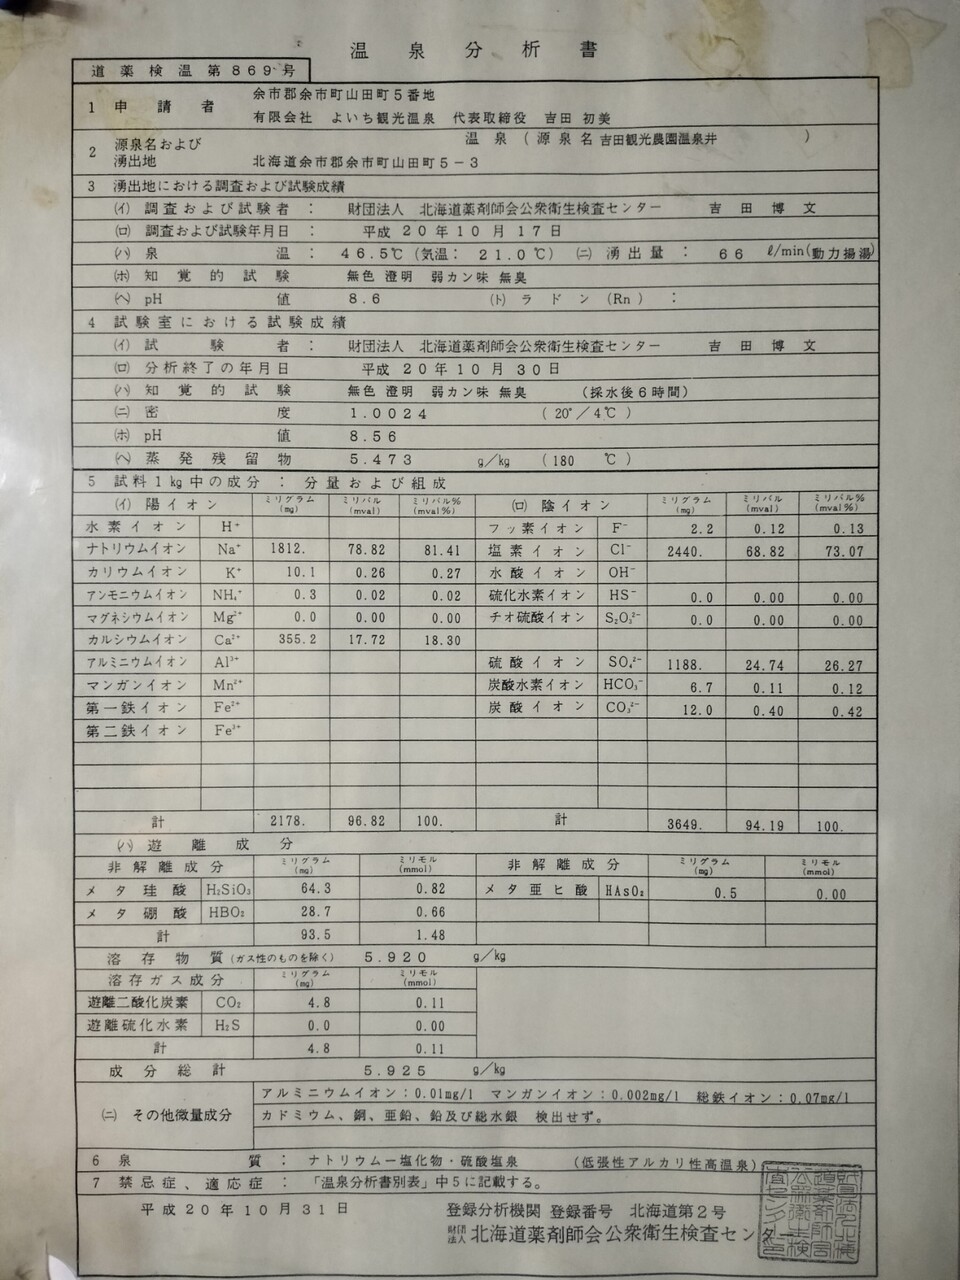 温泉分析書
道薬検温第869号
1 申請者 余市郡余市町山田町5番地
有限会社 よいち観光温泉 代表取締役 吉田 初美
2 源泉名および湧出地 温泉(源泉名 吉田観光農園温泉井)
北海道余市郡余市町山田町5-3
3 湧出地における調査および試験成績
(イ) 調査および試験者: 財団法人 北海道薬剤師会公衆衛生検査センター 吉田博文
(ロ) 調査および試験年月日: 平成20年10月17日
(ハ) 泉温: 46.5℃ (気温: 21.0℃) (ニ) 湧出量: 66 ℓ/min(動力揚湯)
(ホ) 知覚的試験 無色 澄明 弱カン味 無臭
(ヘ) pH値 8.6 (ト) ラドン (Rn):
4 試験室における試験成績
(イ) 試験者: 財団法人 北海道薬剤師会公衆衛生検査センター 吉田博文
(ロ) 分析終了の年月日 平成20年10月30日
(ハ) 知覚的試験 無色 澄明 弱カン味 無臭 (採水後6時間)
(ニ) 密度 1.0024 (20°/4℃)
(ホ) pH値 8.56
(ヘ) 蒸発残留物 5.473 g/kg (180 ℃)
5 試料1kg中の成分: 分量および組成
(イ) 陽イオン ミリグラム(mg) ミリバル(mval) ミリバル%(mval%) (ロ) 陰イオン ミリグラム(mg) ミリバル(mval) ミリバル%(mval%)
水素イオン H⁺ フッ素イオン F⁻ 2.2 0.12 0.13
ナトリウムイオン Na⁺ 1812. 78.82 81.41 塩素イオン Cl⁻ 2440. 68.82 73.07
カリウムイオン K⁺ 10.1 0.26 0.27 水酸イオン OH⁻
アンモニウムイオン NH₄⁺ 0.3 0.02 0.02 硫化水素イオン HS⁻ 0.0 0.00 0.00
マグネシウムイオン Mg²⁺ 0.0 0.00 0.00 チオ硫酸イオン S₂O₃²⁻ 0.0 0.00 0.00
カルシウムイオン Ca²⁺ 355.2 17.72 18.30
アルミニウムイオン Al³⁺ 硫酸イオン SO₄²⁻ 1188. 24.74 26.27
マンガンイオン Mn²⁺ 炭酸水素イオン HCO₃⁻ 6.7 0.11 0.12
第一鉄イオン Fe²⁺ 炭酸イオン CO₃²⁻ 12.0 0.40 0.42
第二鉄イオン Fe³⁺
計 2178. 96.82 100. 計 3649. 94.19 100.
(ハ) 遊離成分
非解離成分 ミリグラム(mg) ミリモル(mmol) 非解離成分 ミリグラム(mg) ミリモル(mmol)
メタ珪酸 H₂SiO₃ 64.3 0.82 メタ亜ヒ酸 HAsO₂ 0.5 0.00
メタ硼酸 HBO₂ 28.7 0.66
計 93.5 1.48
溶存物質(ガス性のものを除く) 5.920 g/kg
溶存ガス成分 ミリグラム(mg) ミリモル(mmol)
遊離二酸化炭素 CO₂ 4.8 0.11
遊離硫化水素 H₂S 0.0 0.00
計 4.8 0.11
成分総計 5.925 g/kg
(ニ) その他微量成分 アルミニウムイオン:0.01mg/l マンガンイオン:0.002mg/l 総鉄イオン:0.07mg/l
カドミウム、銅、亜鉛、鉛及び総水銀 検出せず。
6 泉質: ナトリウムー塩化物・硫酸塩泉 (低張性アルカリ性高温泉)
7 禁忌症、適応症: 「温泉分析書別表」中5に記載する。
平成20年10月31日 登録分析機関 登録番号 北海道第2号
財団法人 北海道薬剤師会公衆衛生検査センター